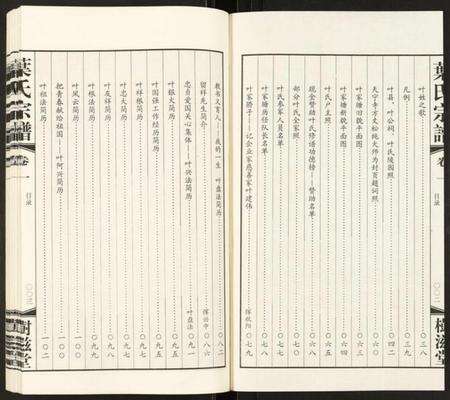 葉氏宗譜
卷一
目录
〇〇二
樹滋堂
叶姓之歌
凡例
叶县、叶公祠、叶氏陵园照
天宁寺方丈松纯大师为封页题词照
叶家塘旧貌平面图
叶家塘新貌平面图
叶氏户主照
现金赞助叶氏修谱功德榜——赞助名单
部分叶氏全家照
叶氏参军人员名单
叶家塘历任队长名单
叶家骄子——记企业家慈善家叶建伟
〇三九
〇四二
〇七九
葉氏宗譜
卷一
目录
〇〇三
樹滋堂
教书又育人——我的一生 叶盘法简历
留祥先生简介
忠贞爱国关心集体——叶兴法简历
叶银大简历
叶国强工作经历简历
叶祥根简历
叶忠大简历
叶友祥简历
叶根法简历
叶凤云简历
把青春献给祖国——叶阿兴简历
叶祖法简历
叶盘法
〇八二
〇八六
〇九一
〇九五
〇九五
〇九七
〇九七
〇九八
〇九九
一〇〇
一〇〇
一〇二